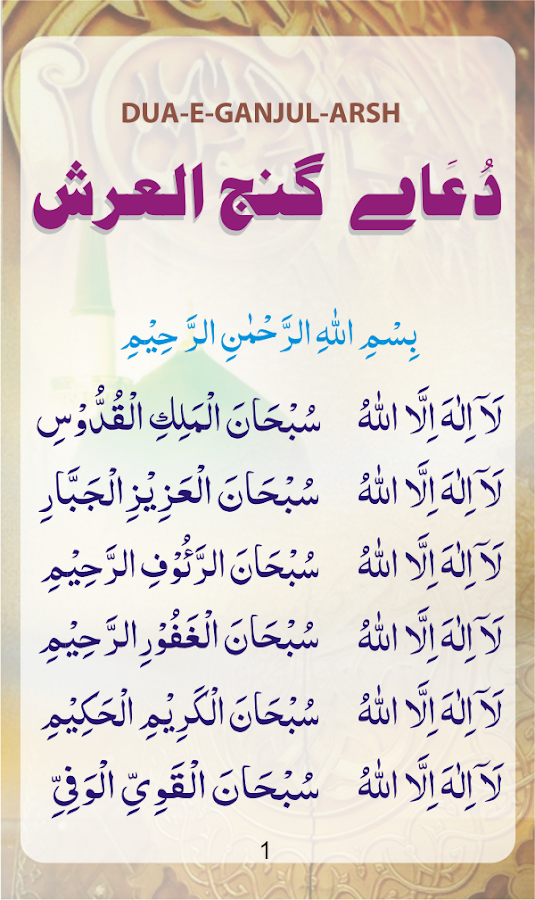 DUA-E-GANJUL-ARSH
دُعَاے گنج العرش
بِسْمِ اللهِ الرَّحْمٰنِ الرَّحِيْمِ
لَآ اِلٰهَ اِلَّا اللهُ سُبْحَانَ الْمَلِكِ الْقُدُّوْسِ
لَآ اِلٰهَ اِلَّا اللهُ سُبْحَانَ الْعَزِيْزِ الْجَبَّارِ
لَآ اِلٰهَ اِلَّا اللهُ سُبْحَانَ الرَّئُوْفِ الرَّحِيْمِ
لَآ اِلٰهَ اِلَّا اللهُ سُبْحَانَ الْغَفُوْرِ الرَّحِيْمِ
لَآ اِلٰهَ اِلَّا اللهُ سُبْحَانَ الْكَرِيْمِ الْحَكِيْمِ
لَآ اِلٰهَ اِلَّا اللهُ سُبْحَانَ الْقَوِيِّ الْوَفِيِّ
1